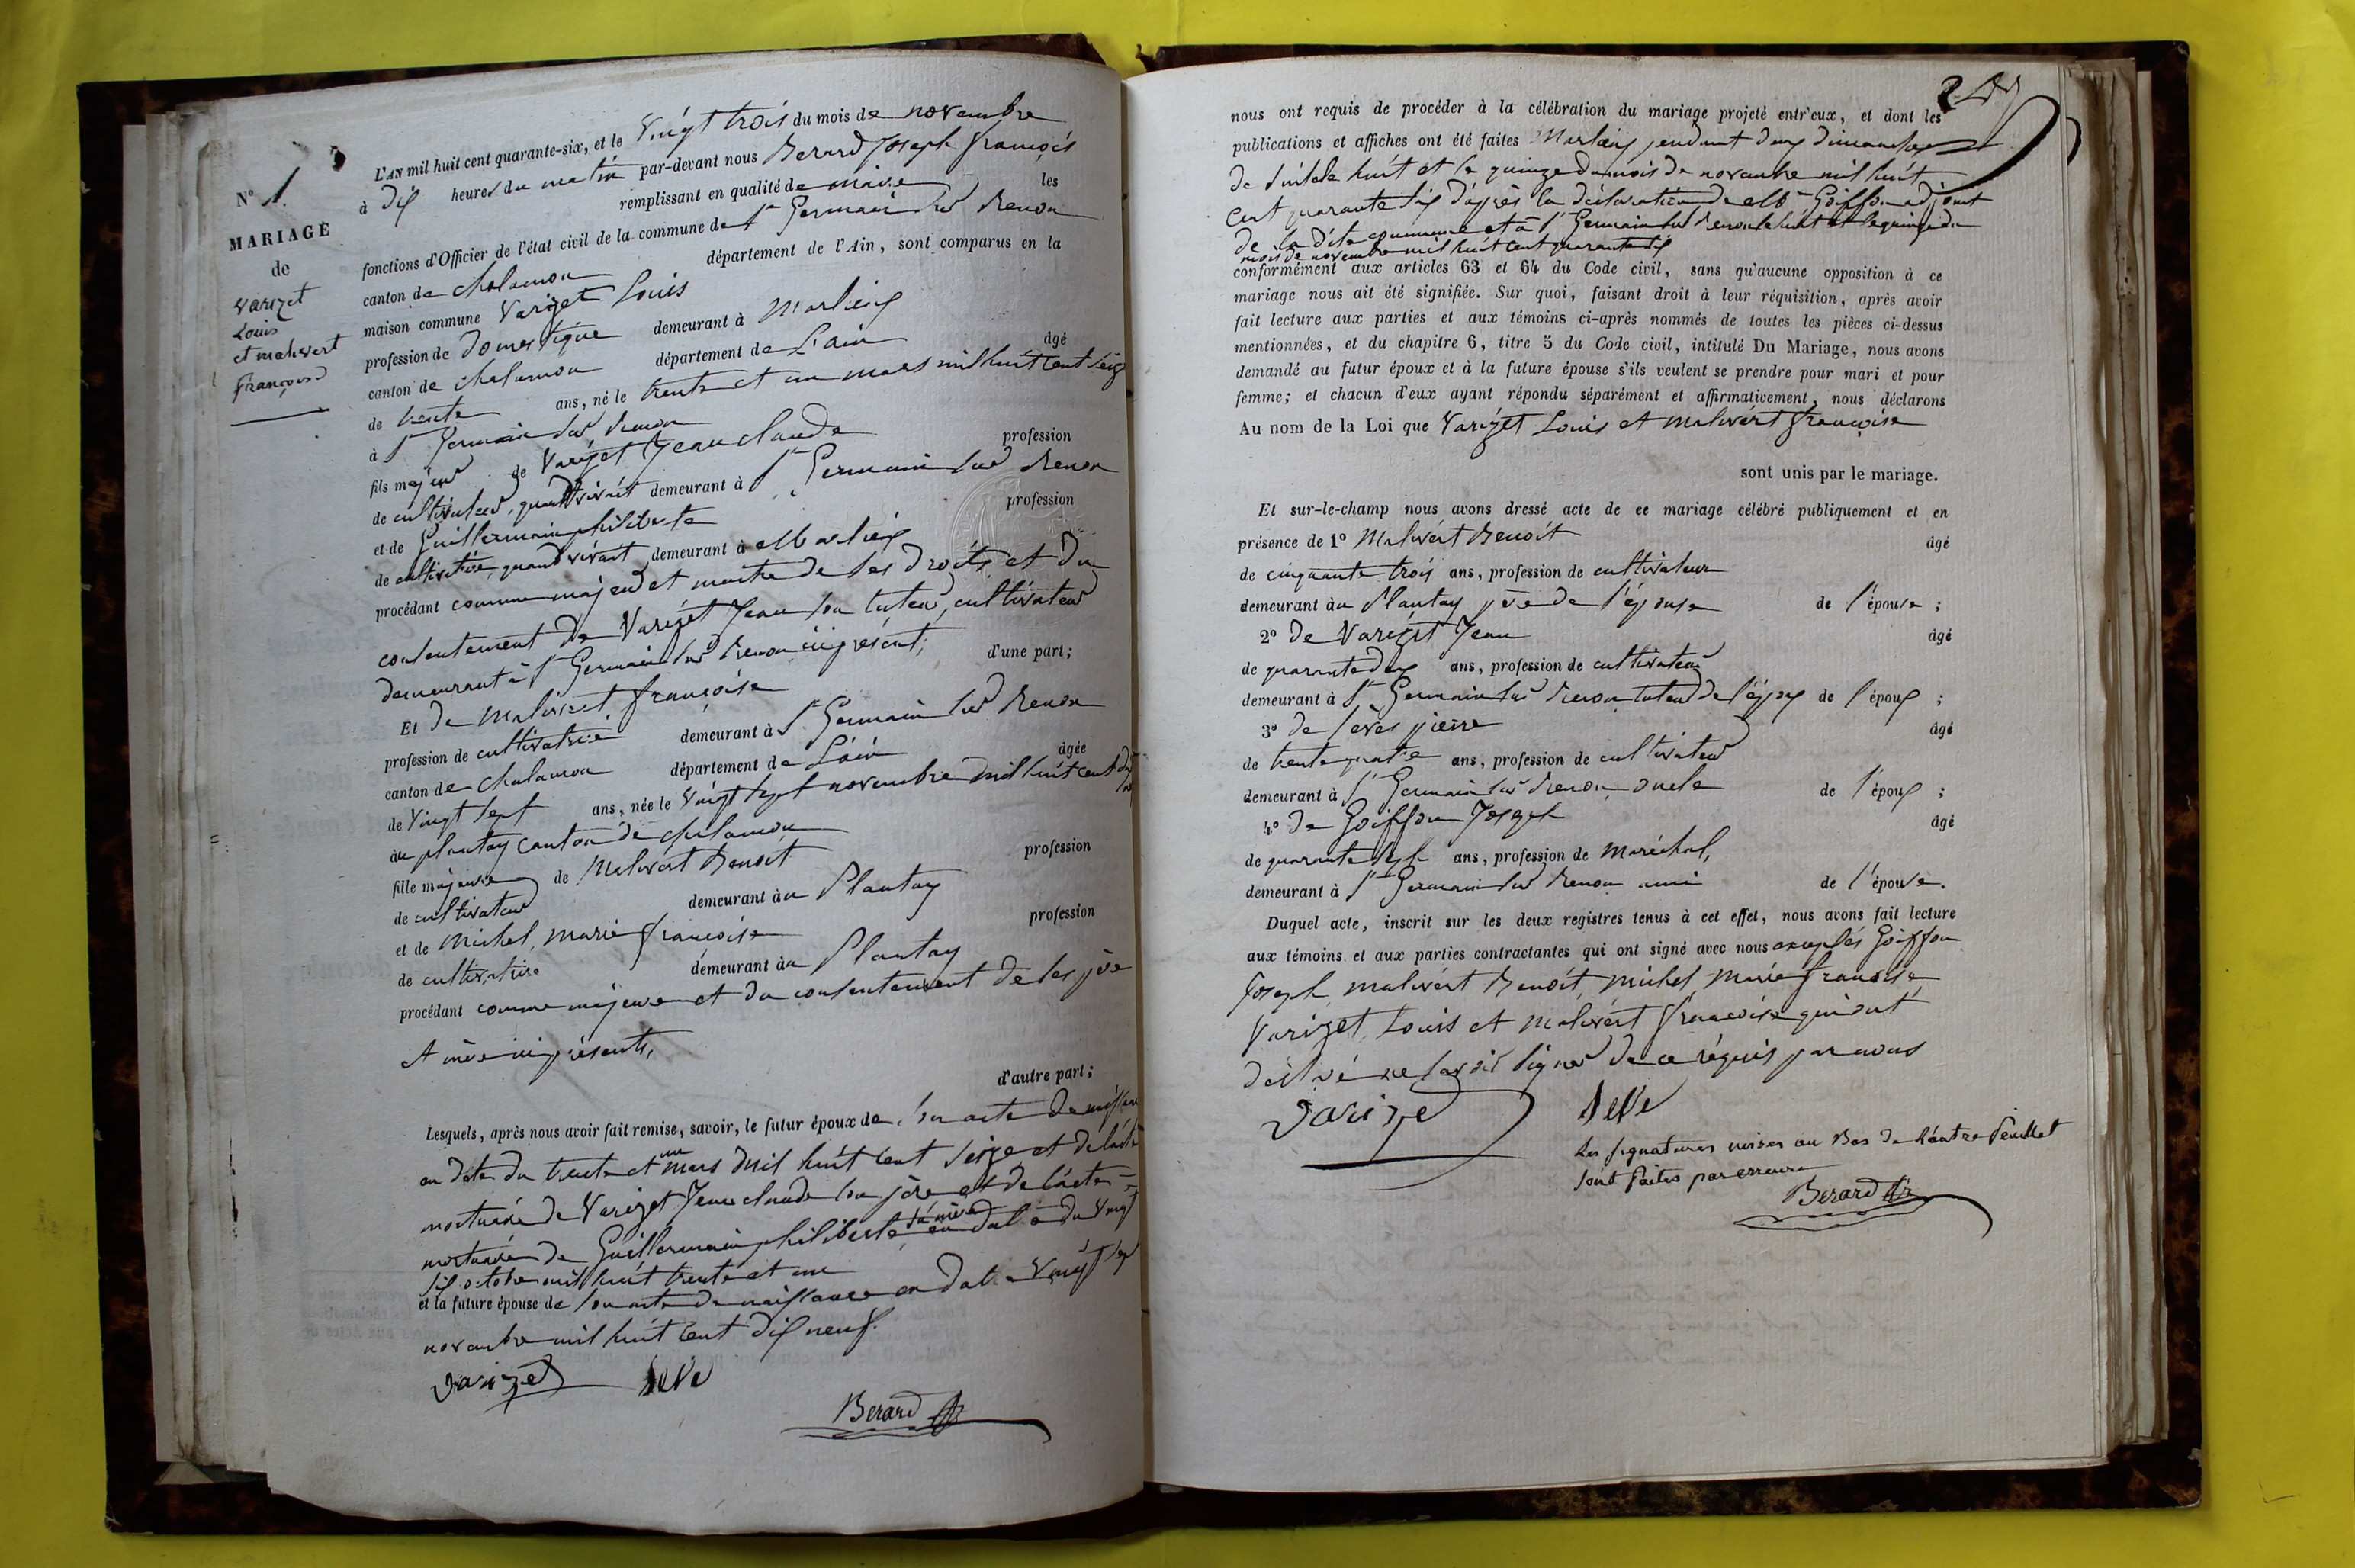 N° 1.
MARIAGE
de
Varizet
Louis
et malivert
françoise
L'AN mil huit cent quarante-six, et le Vingt trois du mois de novembre
à dix heures du matin par-devant nous Berard Joseph françois
remplissant en qualité de maire les
fonctions d'Officier de l'état civil de la commune de St Germain sur Renon
canton de chalamon département de l'Ain, sont comparus en la
maison commune Varizet Louis
profession de domestique demeurant à Marlieux
canton de chalamon département de L'ain âgé
de trente ans, né le trente et un mars mil huit cent seize
à St Germain sur Renon
fils majeur de Varizet Jean claude profession
de cultivateur, quand vivait demeurant à St Germain sur Renon
et de Guillermain philiberte profession
de cultivatrice, quand vivait demeurant à Marlieux
procédant comme majeur et maitre de ses droits et du
consentement de Varizet Jean son tuteur, cultivateur
demeurant à St Germain sur Renon ici présent; d'une part;
Et de Malivert françoise
profession de cultivatrice demeurant à St Germain sur Renon
canton de chalamon département de L'ain âgée
de Vingt sept ans, née le Vingt sept novembre mil huit cent dix
au plantay canton de chalamon
fille majeure de Malivert Benoit profession
de cultivateur demeurant au Plantay
et de Michel, marie françoise profession
de cultivatrice demeurant au Plantay
procédant comme majeure et du consentement de ses père
et mère ici présents,
d'autre part;
Lesquels, après nous avoir fait remise, savoir, le futur époux de son acte de naissance
en date du trente et un mars mil huit cent seize et de l'acte
mortuaire de Varizet Jean claude son père et de l'acte
mortuaire de Guillermain philiberte sa mère en date du Vingt
six octobre mil huit trente et un
et la future épouse de son acte de naissance en date Vingt sept
novembre mil huit cent dix neuf.
Varizet Seve
Berard
nous ont requis de procéder à la célébration du mariage projeté entr'eux, et dont les
publications et affiches ont été faites Marlieux pendant deux dimanches
de suite le huit et le quinze du mois de novembre mil huit
cent quarante six d'après la déclaration de Mr Goiffon adjoint
de la dite commune et à St Germain sur Renon le huit et le quinze du
mois de novembre mil huit cent quarante six
conformément aux articles 63 et 64 du Code civil, sans qu'aucune opposition à ce
mariage nous ait été signifiée. Sur quoi, faisant droit à leur réquisition, après avoir
fait lecture aux parties et aux témoins ci-après nommés de toutes les pièces ci-dessus
mentionnées, et du chapitre 6, titre 5 du Code civil, intitulé Du Mariage, nous avons
demandé au futur époux et à la future épouse s'ils veulent se prendre pour mari et pour
femme; et chacun d'eux ayant répondu séparément et affirmativement, nous déclarons
Au nom de la Loi que Varizet Louis et Malivert françoise
sont unis par le mariage.
Et sur-le-champ nous avons dressé acte de ce mariage célébré publiquement et en
présence de 1° Malivert Benoit âgé
de cinquante trois ans, profession de cultivateur
demeurant au Plantay père de l'épouse de l'épouse;
2° de Varizet Jean âgé
de quarante deux ans, profession de cultivateur
demeurant à St Germain sur Renon tuteur de l'époux de l'époux;
3° de Seve pierre âgé
de trente quatre ans, profession de cultivateur
demeurant à St Germain sur Renon, oncle de l'époux;
4° de Goiffon Joseph âgé
de quarante sept ans, profession de Maréchal,
demeurant à St Germain sur Renon ami de l'épouse.
Duquel acte, inscrit sur les deux registres tenus à cet effet, nous avons fait lecture
aux témoins et aux parties contractantes qui ont signé avec nous exceptés Goiffon
Joseph, malivert Benoit, michel, marie françoise
Varizet, Louis et Malivert françoise qui ont
déclaré ne savoir signer de ce requis par nous
Varizet Seve
Les signatures mises au Bas de l'autre feuillet
sont faites par erreure
Berard